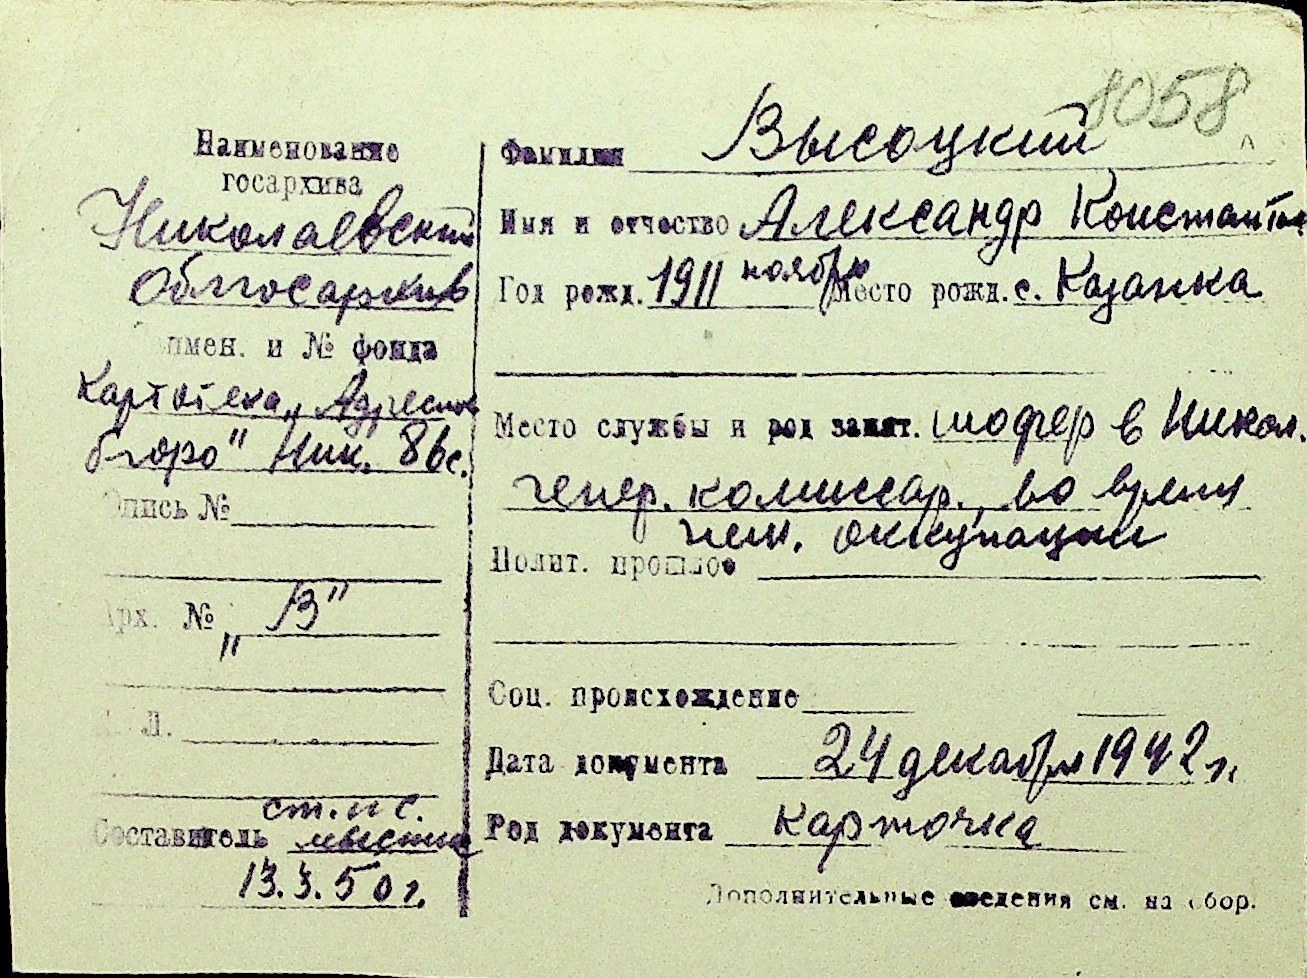 1058
Наименование
госархива
Николаевский
Облгосархив
имен. и № фонда
Картотека „Адресное
бюро" Ник.
Опись №
Арх. № „В"
Л.
Составитель ст. н с.
13.3.50 г.
Фамилия Высоцкий
Имя и отчество Александр Констант
Год рожд. 1911 ноября Место рожд. с. Казанка
Место службы и род занят. шофер в Никол.
генер. комиссар. во время
нем. оккупации
Полит. прошлое
Соц. происхождение
Дата документа 24 декабря 1942 г.
Род документа карточка
Дополнительные сведения см. на обор.